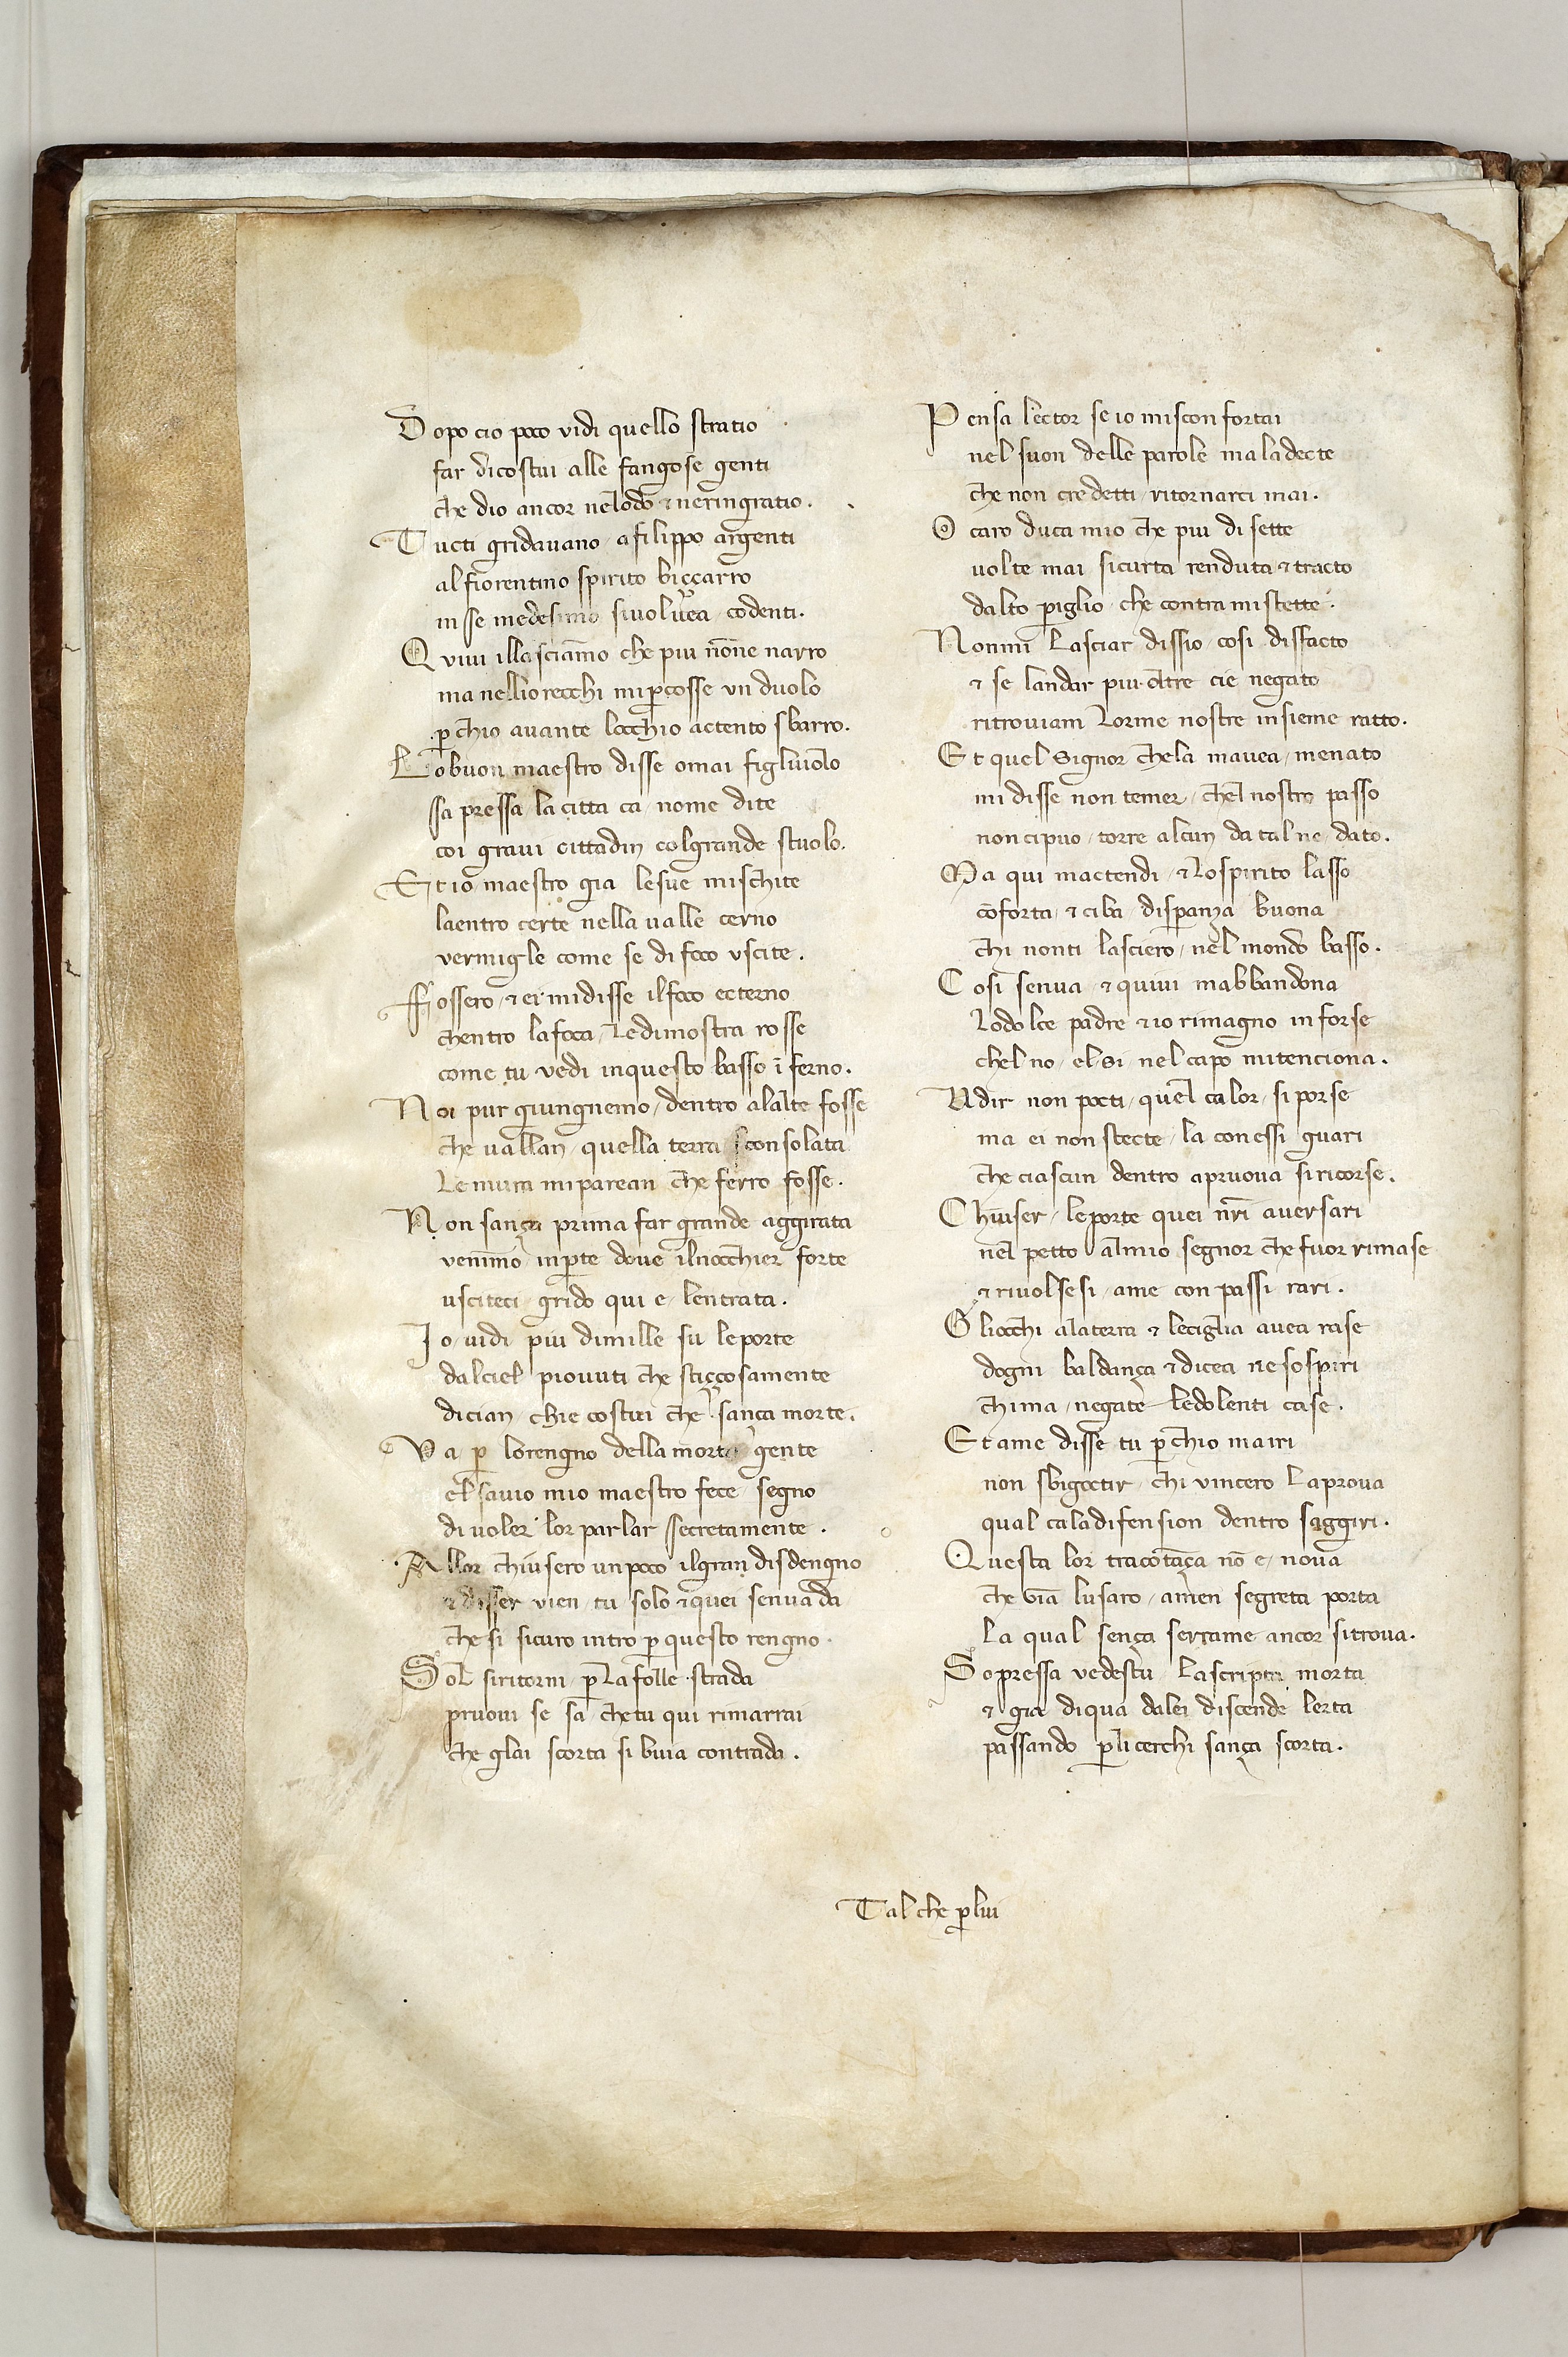 Dopo cio poco vidi quello stratio
far dicostui alle fangose genti
che dio ancor nelodo & neringratio.
Tucti gridauano afilippo argenti
alfiorentino spirito biççarro
inse medesimo siuoluea codenti.
Quiui illasciāmo che piu nōne narro
ma nelliorecchi mip̄cosse vn duolo
p̄chio auante locchio actento sbarro.
Lobuon maestro disse omai figluiolo
sapressa la citta ca nome dite
coi graui cittadin colgrande stuolo.
Et io maestro gia lesue mischite
laentro certe nella ualle cerno
vermigle come se di foco vscite.
Fossero & ei midisse ilfoco ecterno
chentro lafoca ledimostra rosse
come tu vedi inquesto basso īferno.
Noi pur giungnemo dentro alalte fosse
che uallan quella terra sconsolata
Le mura miparean che ferro fosse.
Non sança prima far grande aggirata
venīmo inp̄te doue ilnocchier forte
usciteci grido qui e lentrata.
Io uidi piu dimille su leporte
dalciel piouuti che stiççosamente
dician chie costui che sança morte.
Va p̄ lorengno della morta gente
elsauio mio maestro fece segno
di uoler lor parlar secretamente.
Allor chiusero unpoco ilgran disdengno
& disser vien tu solo & quei senuada
che si sicuro intro p̄ questo rengno.
Sol siritorni p̄ lafolle strada
pruoui se sa chetu qui rimarrai
che glai scorta si buia contrada.
Pensa lector se io misconfortai
nel suon delle parole maladecte
che non credetti ritornarci mai.
O caro duca mio che piu di sette
uolte mai sicurta renduta & tracto
dalto p̄iglio che contra mistette.
Nonmi Lasciar dissio cosi disfacto
& se landar piu oltre cie negato
ritrouiam Lorme nostre insieme ratto.
Et quel signor chela mauea menato
mi disse non temer chel nostro passo
non cipuo torre alcun da tal ne dato.
Ma qui mactendi & lospirito lasso
cōforta & ciba disp̄anza buona
chi nonti lasciero nel mondo basso.
Cosi senua & quiui mabbandona
Lodolce padre & io rimagno in forse
chel no el si nel capo mitenciona.
Udir non pocti quel calor si porse
ma ei non stecte la conessi guari
che ciascun dentro apruoua siricorse.
Chiuser leporte quei nr̄i auersari
nel petto almio segnor che fuor rimase
& riuolsesi ame con passi rari.
Gliocchi alaterra & leciglia auea rase
dogni baldança & dicea ne sospiri
chima negate ledolenti case.
Et ame disse tu p̄chio mairi
non sbigoctir chi vincero Laproua
qual caladifension dentro saggiri.
Questa lor tracotāça nō e noua
che gia lusaro amen segreta porta
La qual sença serrame ancor sitroua.
Sopressa vedestu Lascripta morta
& gia diqua dalei discende lerta
passando p̄licerchi sança scorta.
Tal che p̄lui